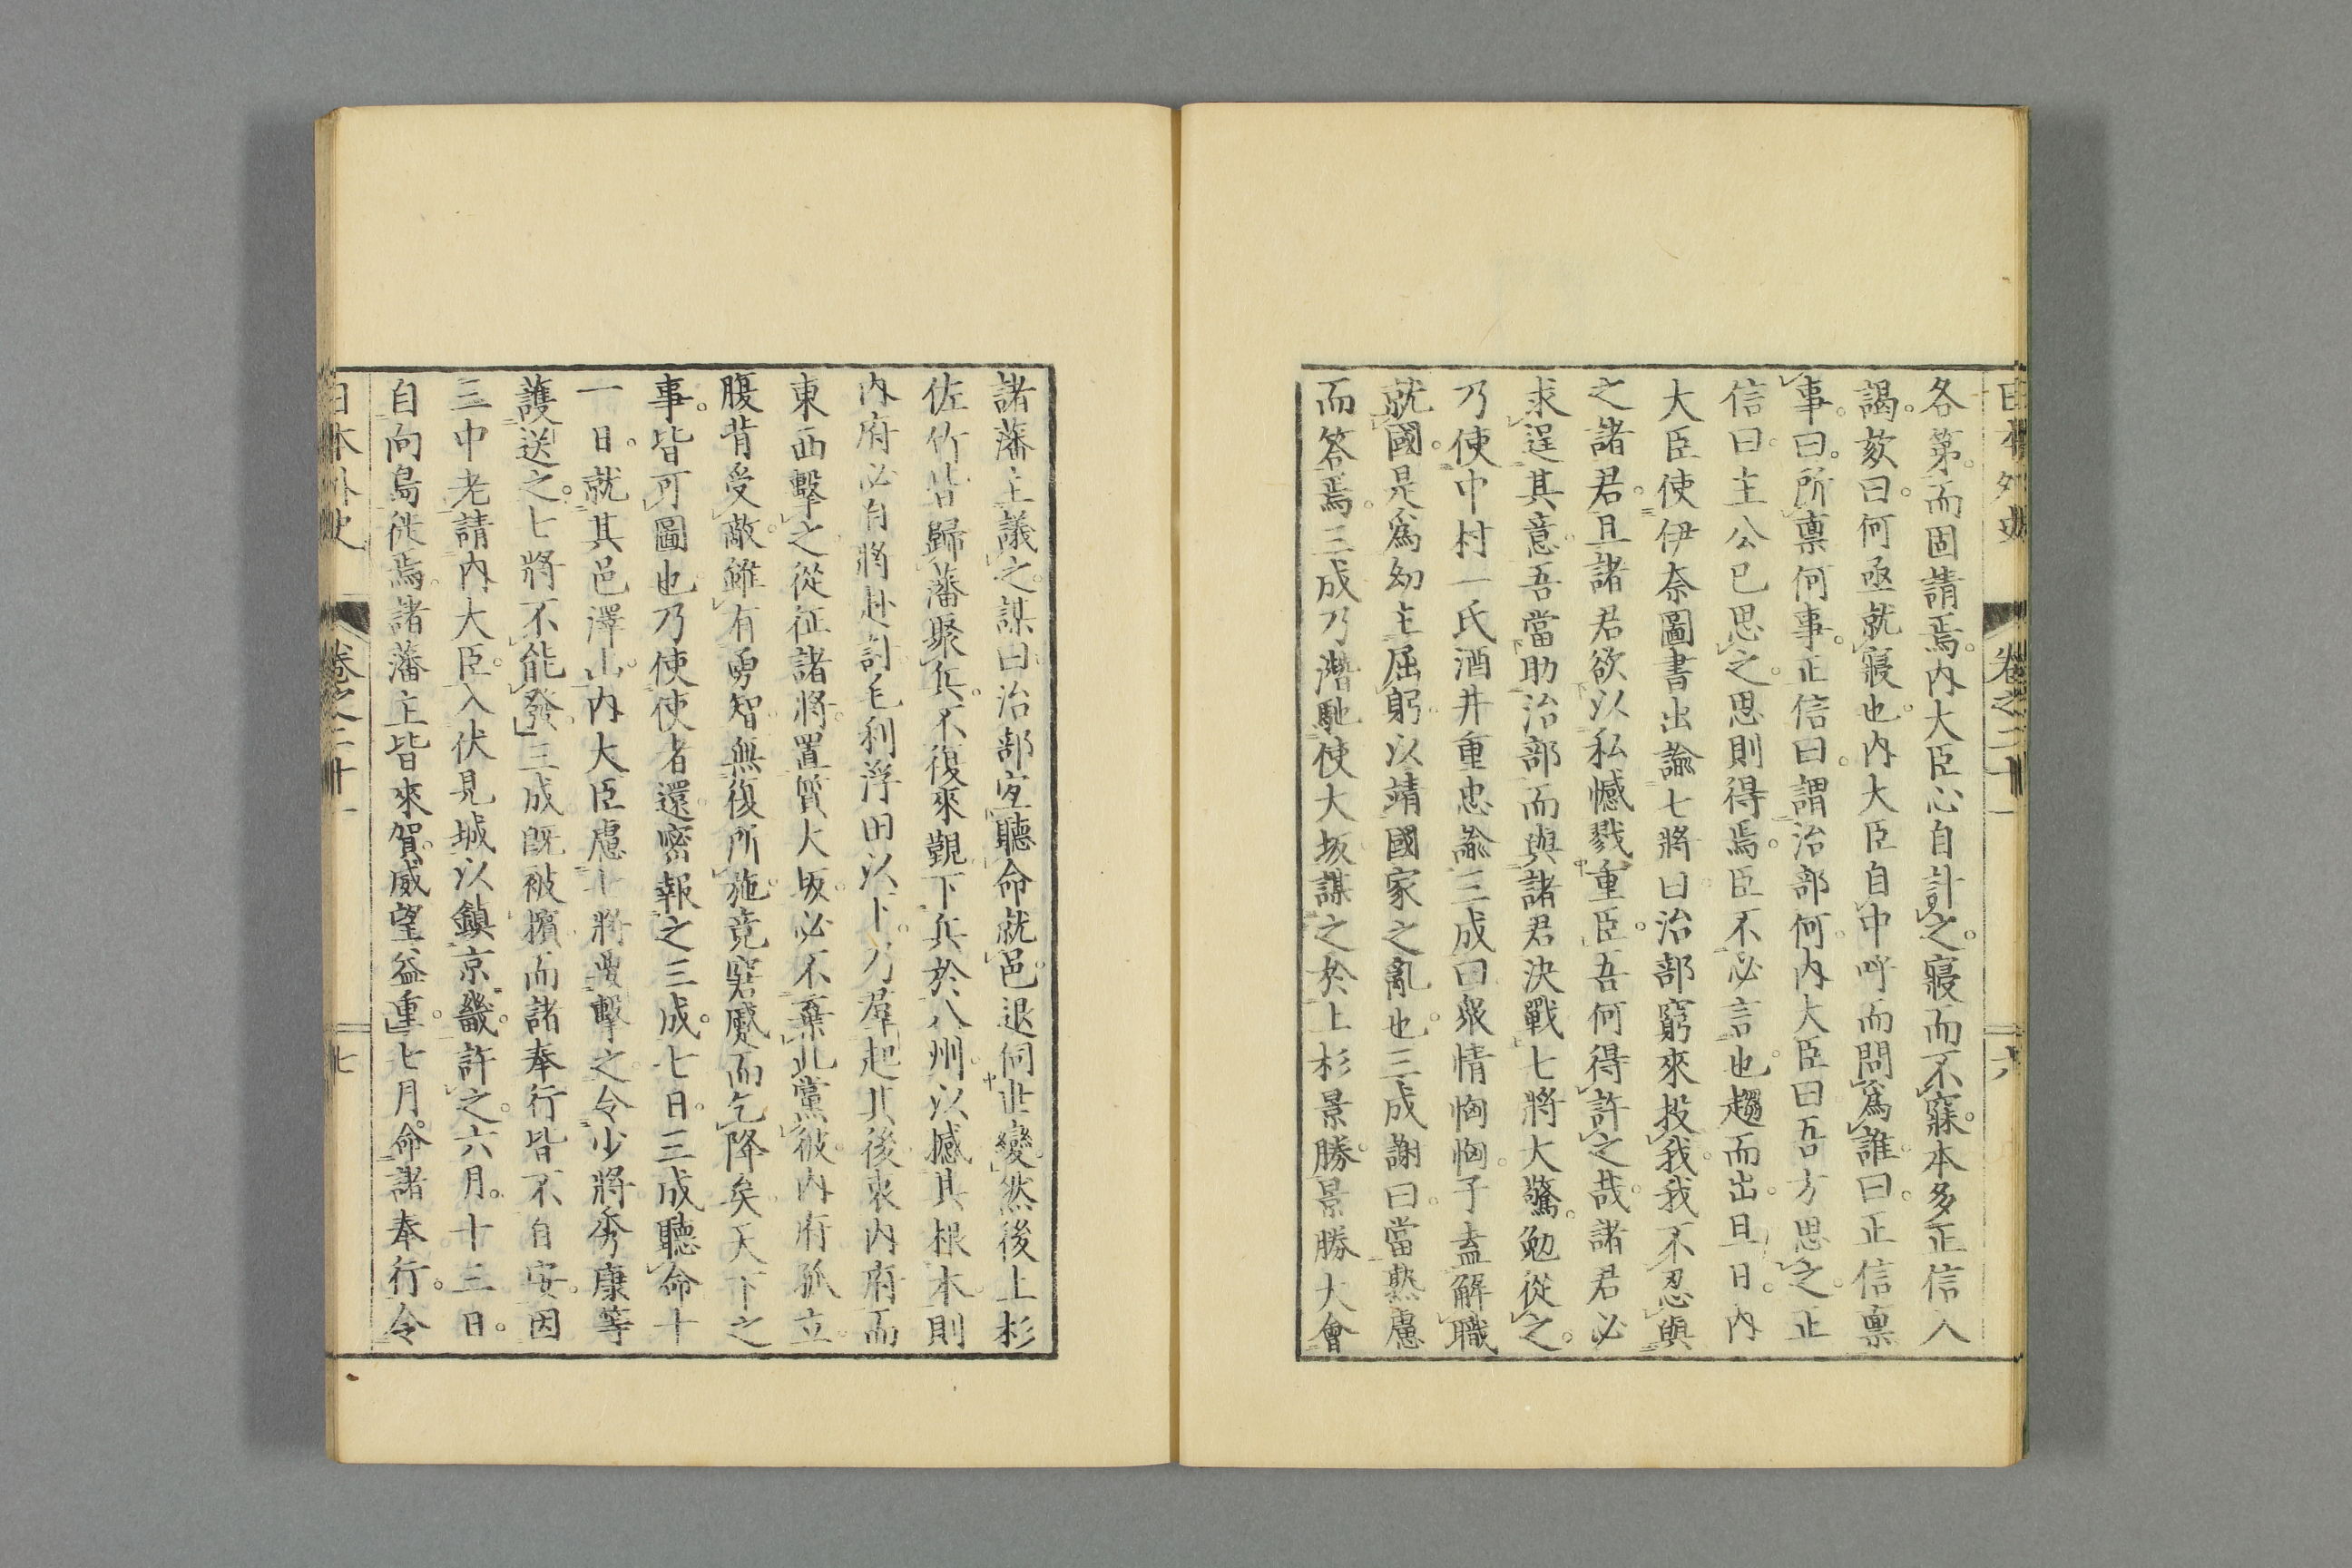 日本外史 卷之二十一 六
各第而固請焉。内大臣心自計之。寢而不寐。本多正信入
謁。欬曰。何亟就寢也。内大臣自中呼而問爲誰。曰。正信稟
事。曰。所稟何事。正信曰。謂治部何。内大臣曰吾方思之。正
信曰。主公已思之。思則得焉。臣不必言也。趨而出。旦日。内
大臣使伊奈圖書出諭七將曰。治部窮來投我。我不忍與
之諸君。且諸君欲以私憾戮重臣。吾何得許之哉。諸君必
求逞其意。吾當助治部而與諸君決戰。七將大驚。勉從之。
乃使中村一氏酒井重忠諭三成曰。衆情恟恟。子盍解職
就國。是爲幼主屈躬。以靖國家之亂也。三成謝曰。當熟慮
而答焉。三成乃潛馳使大坂。謀之於上杉景勝。景勝大會
諸藩主議之。謀曰。治部宜聽命就邑。退伺世變。然後上杉
佐竹皆歸藩聚兵。不復來覲。下兵於八州。以撼其根本。則
内府必自將赴討。毛利浮田以下。乃羣起其後。夾内府而
東西擊之。從征諸將。置質大坂。必不棄此黨彼。内府孤立。
腹背受敵。雖有勇智。無復所施。竟窘蹙而乞降矣。天下之
事。皆可圖也。乃使使者還密報之三成。七日。三成聽命。十
一日。就其邑澤山。内大臣慮七將要擊之。令少將秀康等
護送之。七將不能發。三成既被擯。而諸奉行皆不自安。因
三中老請内大臣。入伏見城以鎮京畿。許之。六月。十三日。
自向島徙焉。諸藩主皆來賀。威望益重。七月。命諸奉行。令
日本外史 卷之二十一 七